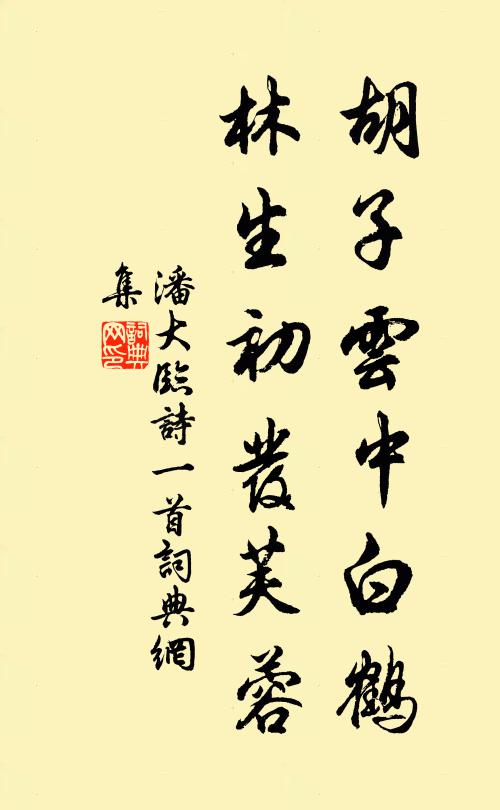 胡子雲中白鶴
林生初發芙蓉
潘大臨詩一首詞典網
集
詞典网印